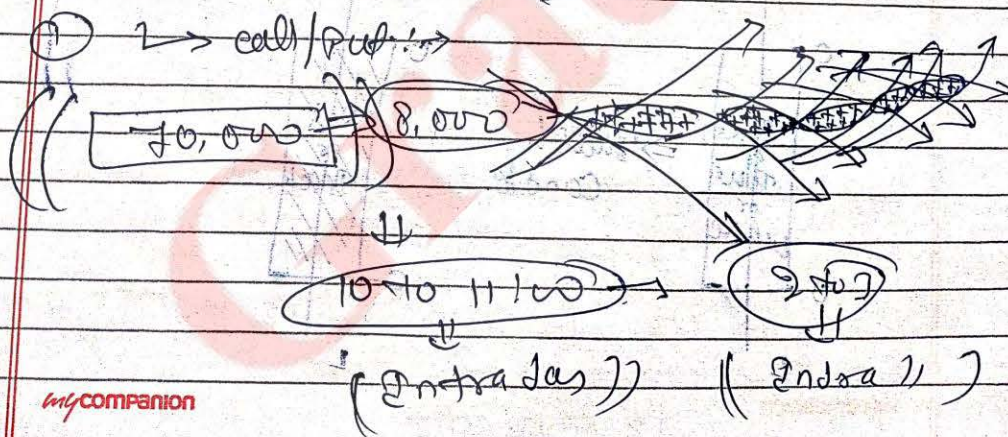 ① 2 → call/put :→
70,000 → 8,000
10 to 11:00 → 2 to 3
(Intraday)) (( Intra " )
mycompanion